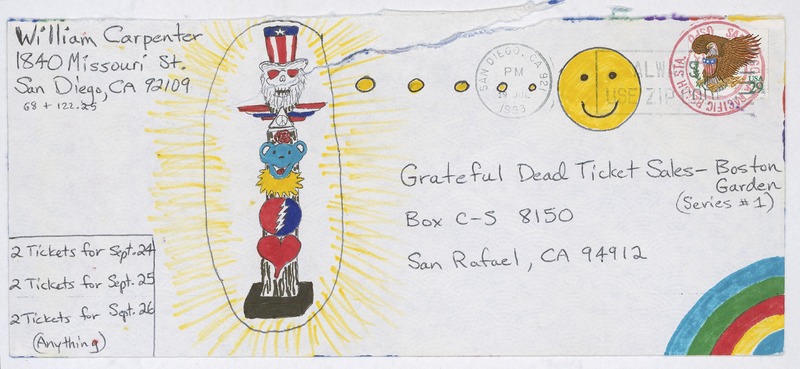 William Carpenter
1840 Missouri St.
San Diego, CA 92109
68 + 122.25
SAN DIEGO, CA 921
PM
1993
USE ZIP
29
Grateful Dead Ticket Sales - Boston
Garden
(Series #1)
Box C-S 8150
San Rafael, CA 94912
2 Tickets for Sept. 24
2 Tickets for Sept. 25
2 Tickets for Sept. 26
(Anything)